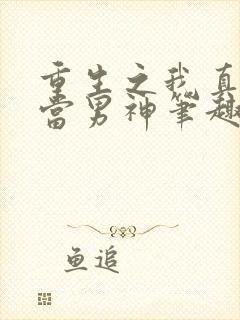 重生之我真
当男神笔趣
鱼追